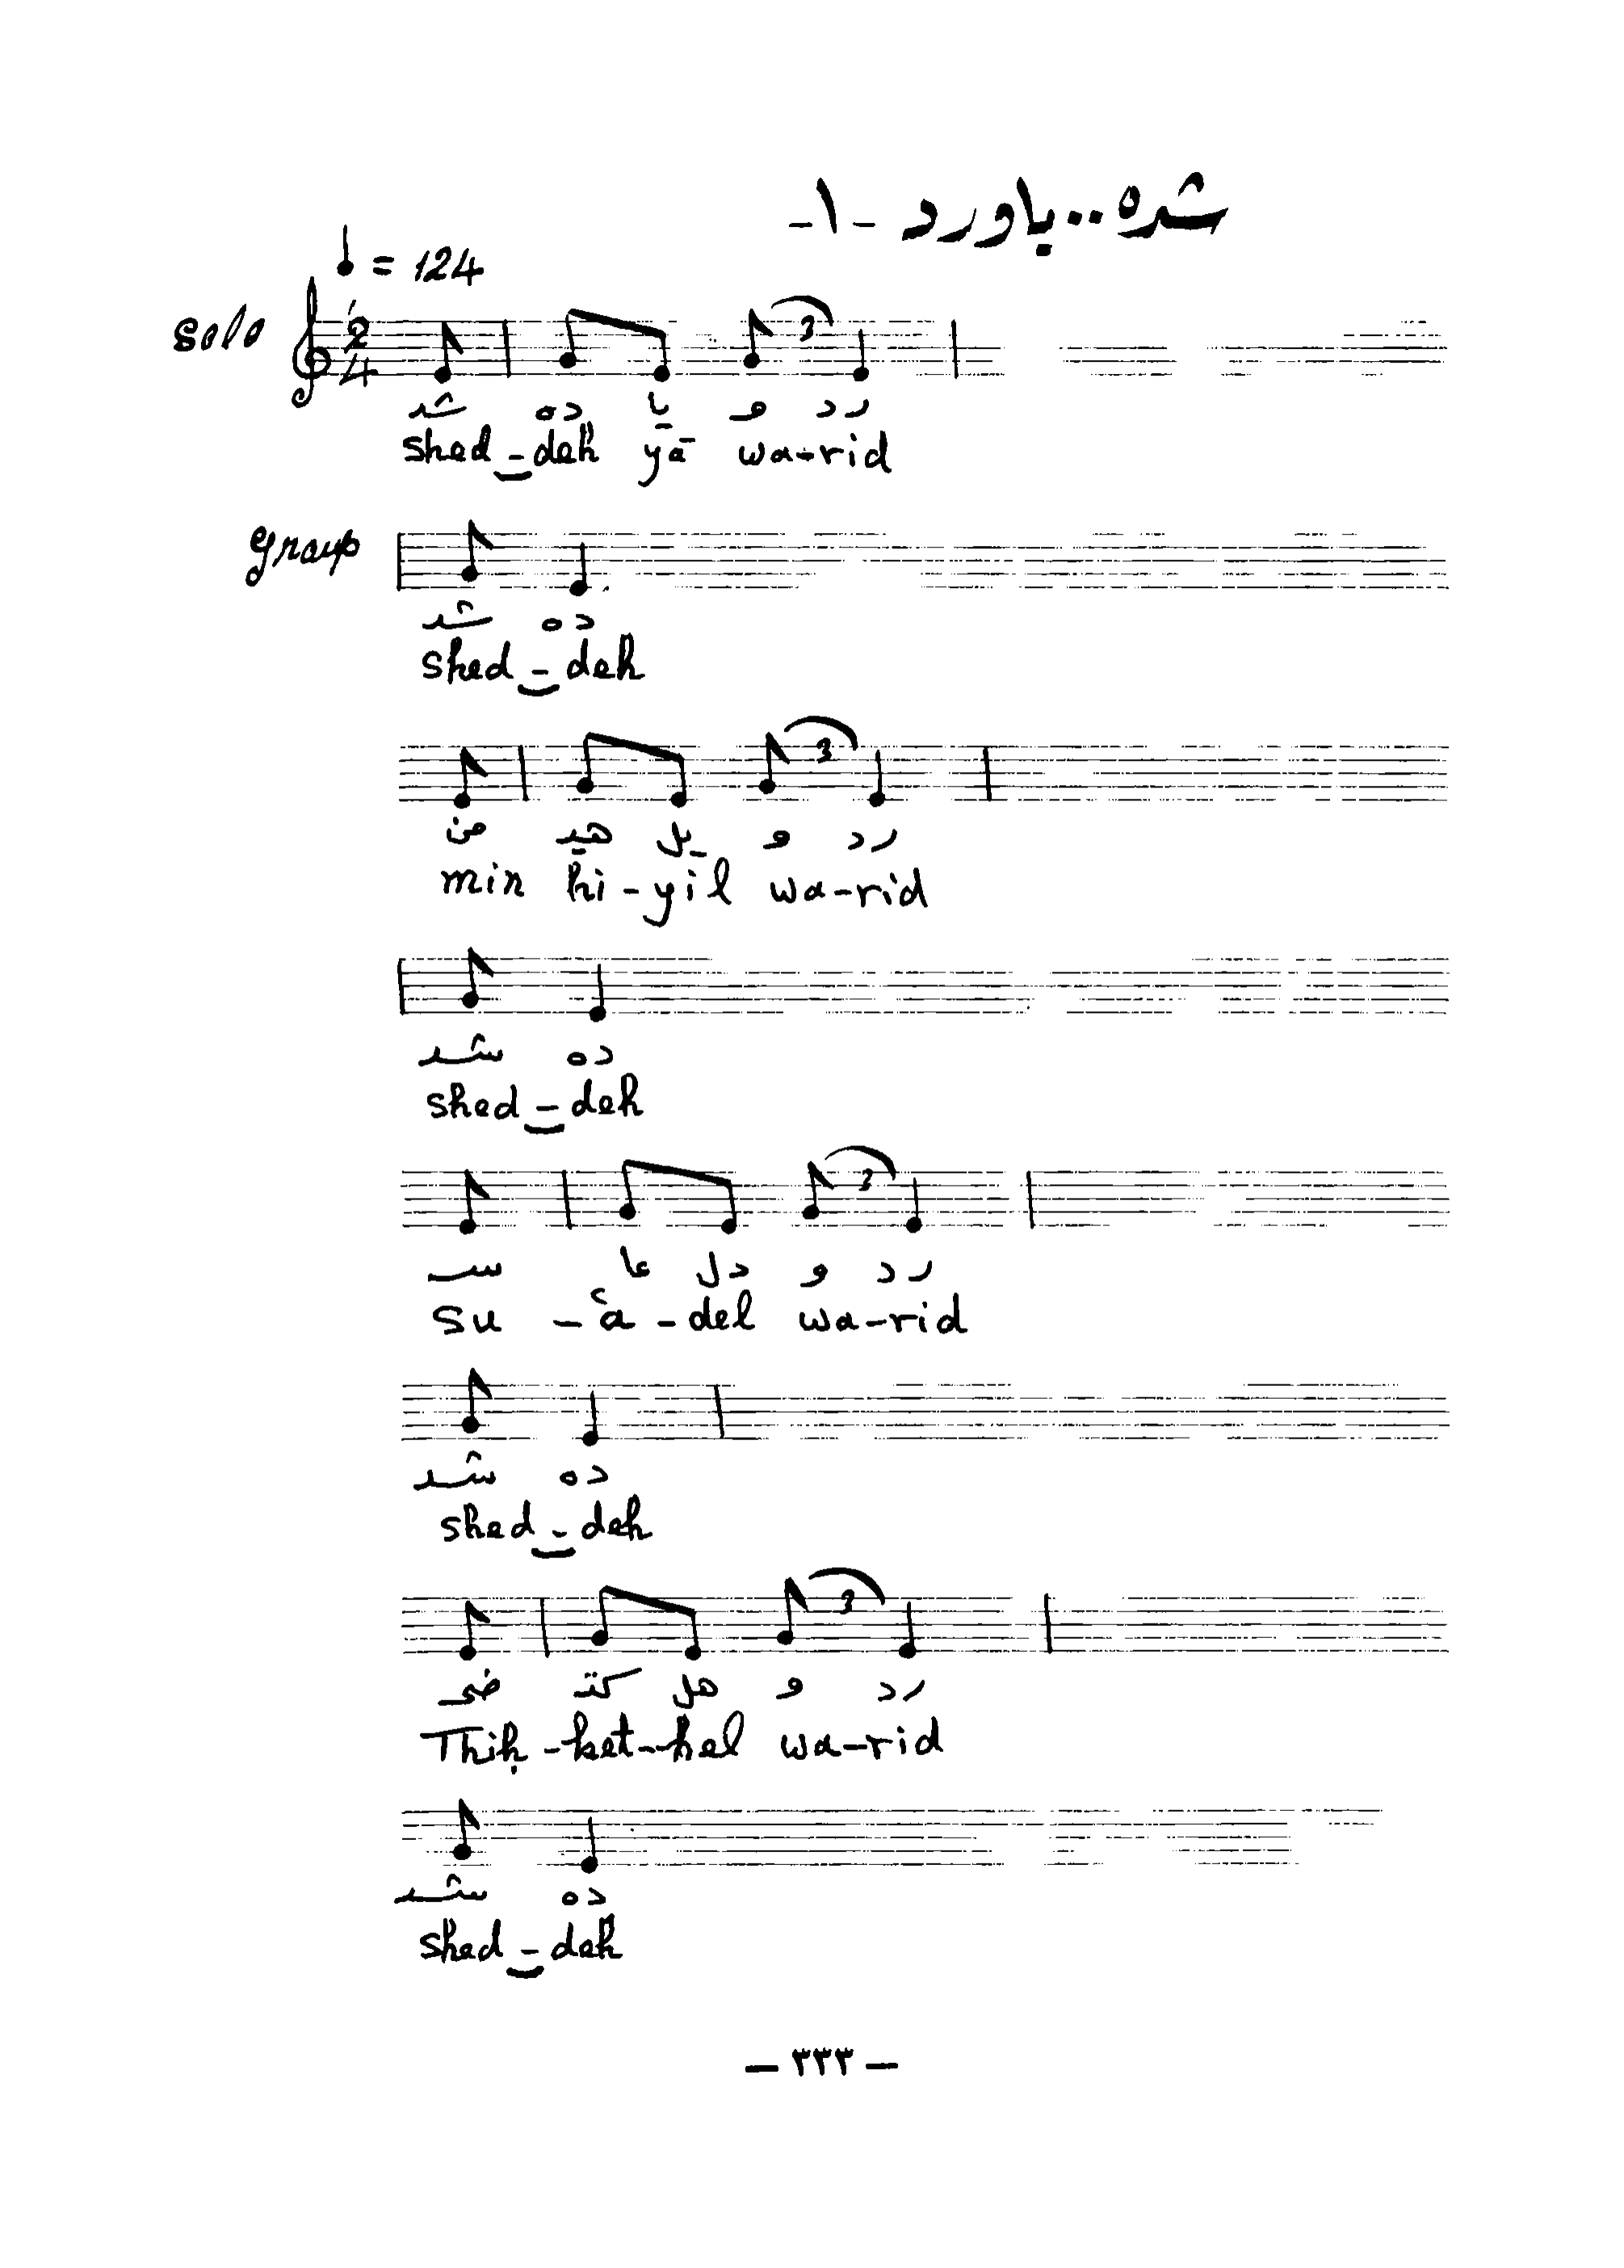 شده..ياورد -١-
♩ = 124
solo 2/4
3
شد ده يا و رد
shed_deh yā wa-rid
group
شد ده
shed_deh
3
من هيـ يل و رد
min hi-yil wa-rid
شد ده
shed_deh
3
سـ عا دل و رد
su -ʿa -del wa-rid
شد ده
shed_deh
3
ضحـ كتـ هل و رد
Thiḥ-ket-hel wa-rid
شد ده
shed_deh
— ٣٣٣ —